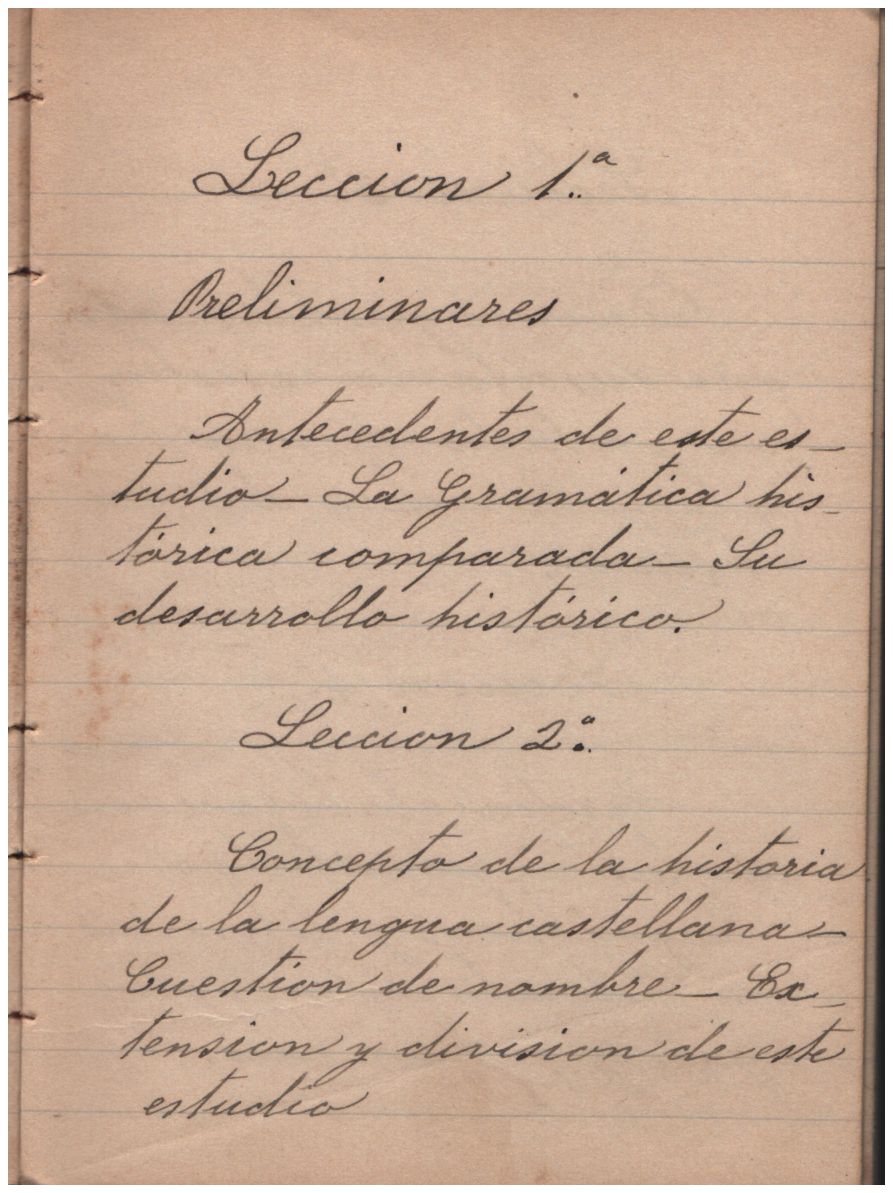 Leccion 1.ª
Preliminares
Antecedentes de este es-
tudio - La Gramática his-
tórica comparada - Su
desarrollo histórico.
Leccion 2.ª
Concepto de la historia
de la lengua castellana -
Cuestion de nombre - Ex-
tension y division de este
estudio